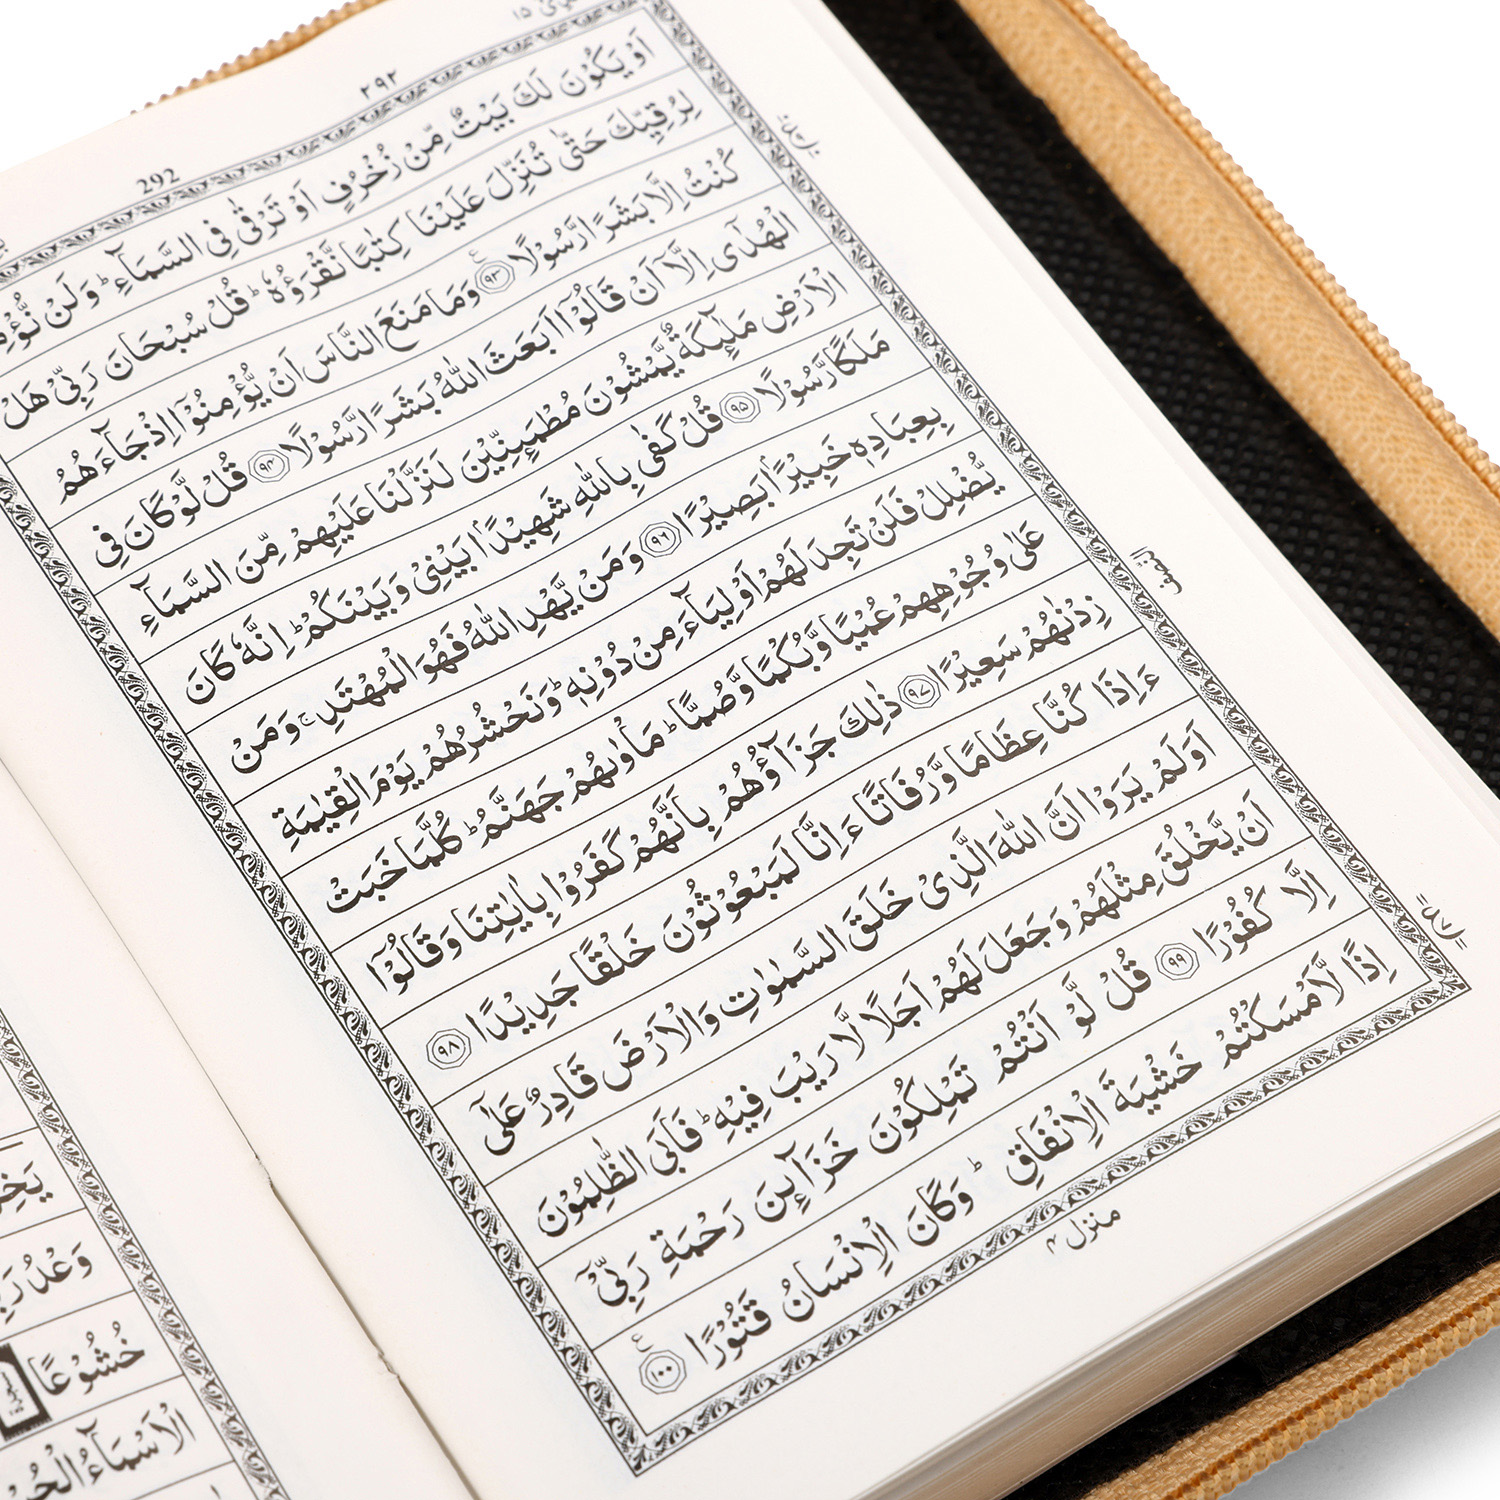 ۲۹۲
292
اَوْ يَكُوْنَ لَكَ بَيْتٌ مِّنْ زُخْرُفٍ اَوْ تَرْقٰى فِى السَّمَآءِ ؕ وَلَنْ
لِرُقِيِّكَ حَتّٰى تُنَزِّلَ عَلَيْنَا كِتٰبًا نَّقْرَؤُهٗ ؕ قُلْ سُبْحَانَ رَبِّىْ هَلْ
كُنْتُ اِلَّا بَشَرًا رَّسُوْلًا ۹۳ وَمَا مَنَعَ النَّاسَ اَنْ يُّؤْمِنُوْۤا اِذْ جَآءَهُمُ
الْهُدٰۤى اِلَّاۤ اَنْ قَالُوْۤا اَبَعَثَ اللّٰهُ بَشَرًا رَّسُوْلًا ۹۴ قُلْ لَّوْ كَانَ فِى
الْاَرْضِ مَلٰٓئِكَةٌ يَّمْشُوْنَ مُطْمَئِنِّيْنَ لَنَزَّلْنَا عَلَيْهِمْ مِّنَ السَّمَآءِ
مَلَكًا رَّسُوْلًا ۹۵ قُلْ كَفٰى بِاللّٰهِ شَهِيْدًۢا بَيْنِىْ وَبَيْنَكُمْ ؕ اِنَّهٗ كَانَ
بِعِبَادِهٖ خَبِيْرًۢا بَصِيْرًا ۹۶ وَمَنْ يَّهْدِ اللّٰهُ فَهُوَ الْمُهْتَدِ ۚ وَمَنْ
يُّضْلِلْ فَلَنْ تَجِدَ لَهُمْ اَوْلِيَآءَ مِنْ دُوْنِهٖ ؕ وَنَحْشُرُهُمْ يَوْمَ الْقِيٰمَةِ
عَلٰى وُجُوْهِهِمْ عُمْيًا وَّبُكْمًا وَّصُمًّا ؕ مَاْوٰىهُمْ جَهَنَّمُ ؕ كُلَّمَا خَبَتْ
زِدْنٰهُمْ سَعِيْرًا ۹۷ ذٰلِكَ جَزَآؤُهُمْ بِاَنَّهُمْ كَفَرُوْا بِاٰيٰتِنَا وَقَالُوْۤا
ءَاِذَا كُنَّا عِظَامًا وَّرُفَاتًا ءَاِنَّا لَمَبْعُوْثُوْنَ خَلْقًا جَدِيْدًا ۹۸
اَوَلَمْ يَرَوْا اَنَّ اللّٰهَ الَّذِىْ خَلَقَ السَّمٰوٰتِ وَالْاَرْضَ قَادِرٌ عَلٰۤى
اَنْ يَّخْلُقَ مِثْلَهُمْ وَجَعَلَ لَهُمْ اَجَلًا لَّا رَيْبَ فِيْهِ ؕ فَاَبَى الظّٰلِمُوْنَ
اِلَّا كُفُوْرًا ۹۹ قُلْ لَّوْ اَنْتُمْ تَمْلِكُوْنَ خَزَآئِنَ رَحْمَةِ رَبِّىْۤ
اِذًا لَّاَمْسَكْتُمْ خَشْيَةَ الْاِنْفَاقِ ؕ وَكَانَ الْاِنْسَانُ قَتُوْرًا ۱۰۰
منزل ۴
وَعْدُ
خُشُوْعًا
الْاَسْمَآءُ